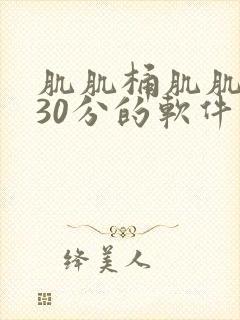 肌肌桶肌肌
30分的軟件
绛美人